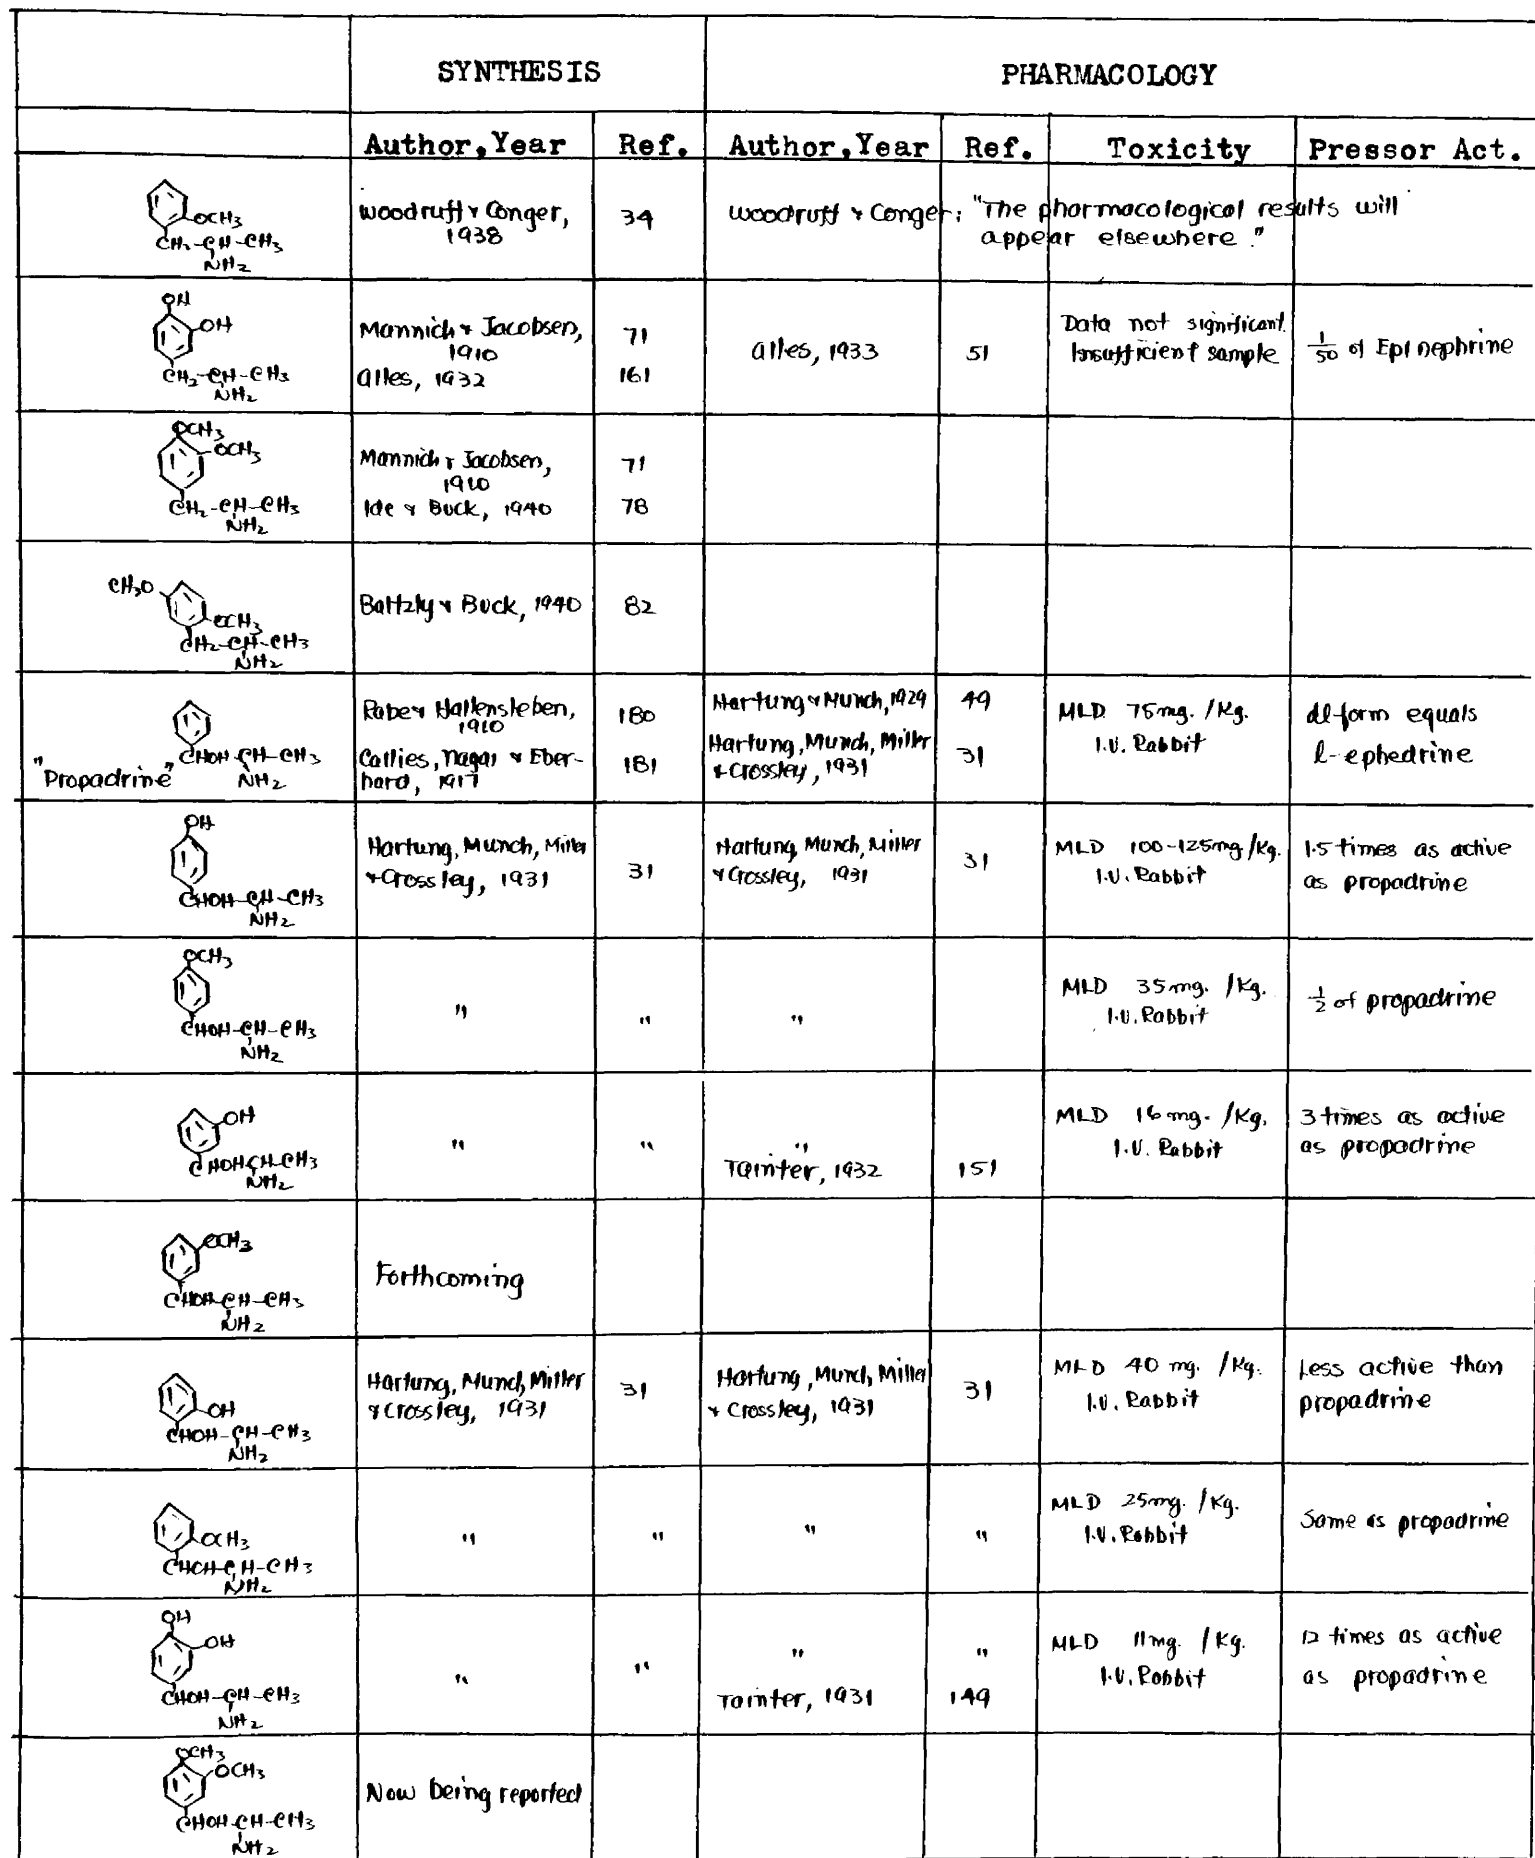 SYNTHESIS PHARMACOLOGY
Author,Year Ref. Author,Year Ref. Toxicity Pressor Act.
OCH3
CH2-CH-CH3
NH2
Woodruff & Conger,
1938
34
Woodruff & Conger: "The pharmacological results will
appear elsewhere."
OH
OH
CH2-CH-CH3
NH2
Mannich & Jacobsen,
1910
71
Alles, 1932
161
Alles, 1933
51
Data not significant.
Insufficient sample
1/50 of Epinephrine
OCH3
OCH3
CH2-CH-CH3
NH2
Mannich & Jacobsen,
1910
71
Ide & Buck, 1940
78
CH3O
OCH3
CH2-CH-CH3
NH2
Baltzly & Buck, 1940
82
CHOH-CH-CH3
"Propadrine" NH2
Rabe & Hallensleben,
1910
180
Callies, Nagai & Eber-
hard, 1917
181
Hartung & Munch, 1929
49
Hartung, Munch, Miller
& Crossley, 1931
31
MLD 75mg. /Kg.
I.V. Rabbit
dl form equals
l-ephedrine
OH
CHOH-CH-CH3
NH2
Hartung, Munch, Miller
& Crossley, 1931
31
Hartung, Munch, Miller
& Crossley, 1931
31
MLD 100-125mg/Kg.
I.V. Rabbit
1.5 times as active
as propadrine
OCH3
CHOH-CH-CH3
NH2
"
"
"
MLD 35mg. /Kg.
I.V. Rabbit
1/2 of propadrine
OH
CHOHCH-CH3
NH2
"
"
"
Tainter, 1932
151
MLD 16mg. /Kg.
I.V. Rabbit
3 times as active
as propadrine
OCH3
CHOH-CH-CH3
NH2
Forthcoming
OH
CHOH-CH-CH3
NH2
Hartung, Munch, Miller
& Crossley, 1931
31
Hartung, Munch, Miller
& Crossley, 1931
31
MLD 40 mg. /Kg.
I.V. Rabbit
Less active than
propadrine
OCH3
CHOH-CH-CH3
NH2
"
"
"
"
MLD 25mg. /Kg.
I.V. Rabbit
Same as propadrine
OH
OH
CHOH-CH-CH3
NH2
"
"
"
"
Tainter, 1931
149
MLD 11mg. /Kg.
I.V. Rabbit
12 times as active
as propadrine
OCH3
OCH3
CHOH-CH-CH3
NH2
Now being reported